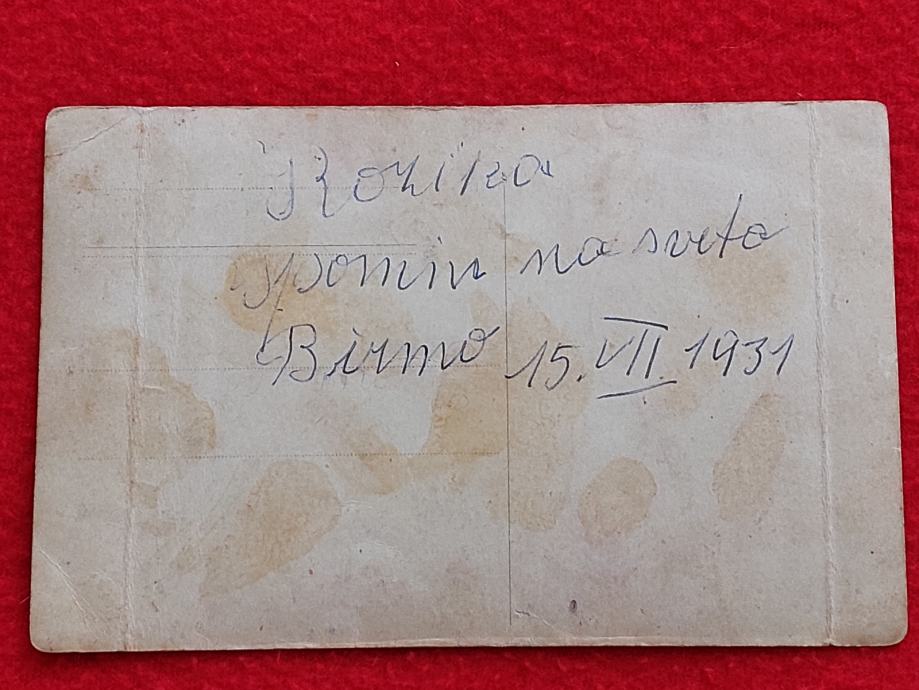 Rozika
spomin na sveto
Birmo 15. VII. 1931